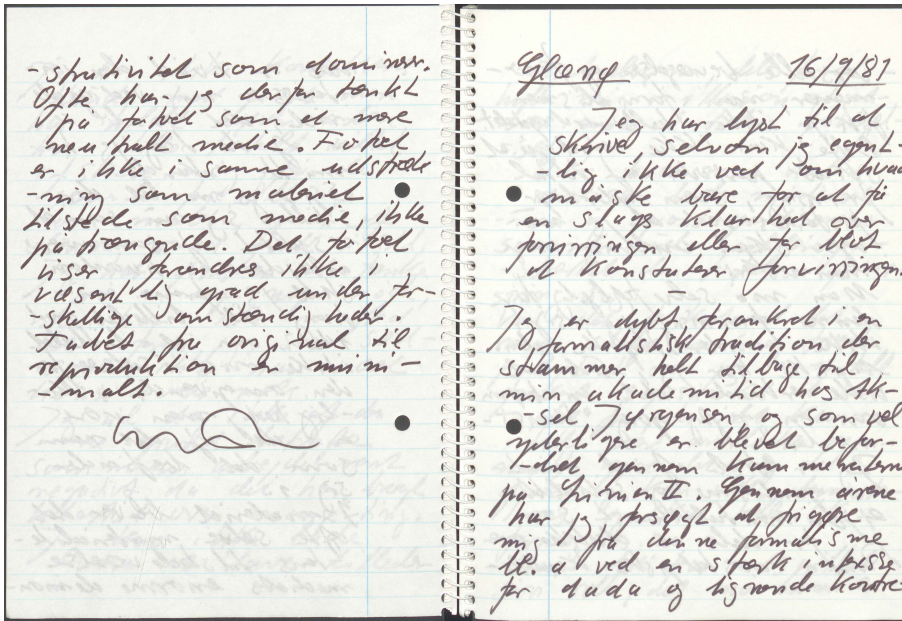 -strativitet som dominerer.
Ofte har jeg derfor tænkt
på fotoet som et mere
neutralt medie. Fotoet
er ikke i samme udstræk
-ning som maleriet
tilstede som medie, ikke
påtrængende. Det fotoet
viser forandres ikke i
væsentlig grad under for-
-skellige omstændigheder.
Tabet fra original til
reproduktion er mini-
-malt.
Glænø 16/9/81
Jeg har lyst til at
skrive, selvom jeg egent-
-lig ikke ved om hvad
- måske bare for at få
en slags klarhed over
forvirringen eller for blot
at konstatere forvirringen.
—
Jeg er dybt forankret i en
formalistisk tradition der
strammer helt tilbage til
min akademitid hos Ak-
-sel Jørgensen og som vel
yderligere er blevet befor-
-dret gennem kammeraterne
på Linien II. Gennem årene
har jeg forsøgt at frigøre
mig fra denne formalisme
bl.a ved en stærk interesse
for dada og lignende kontre-